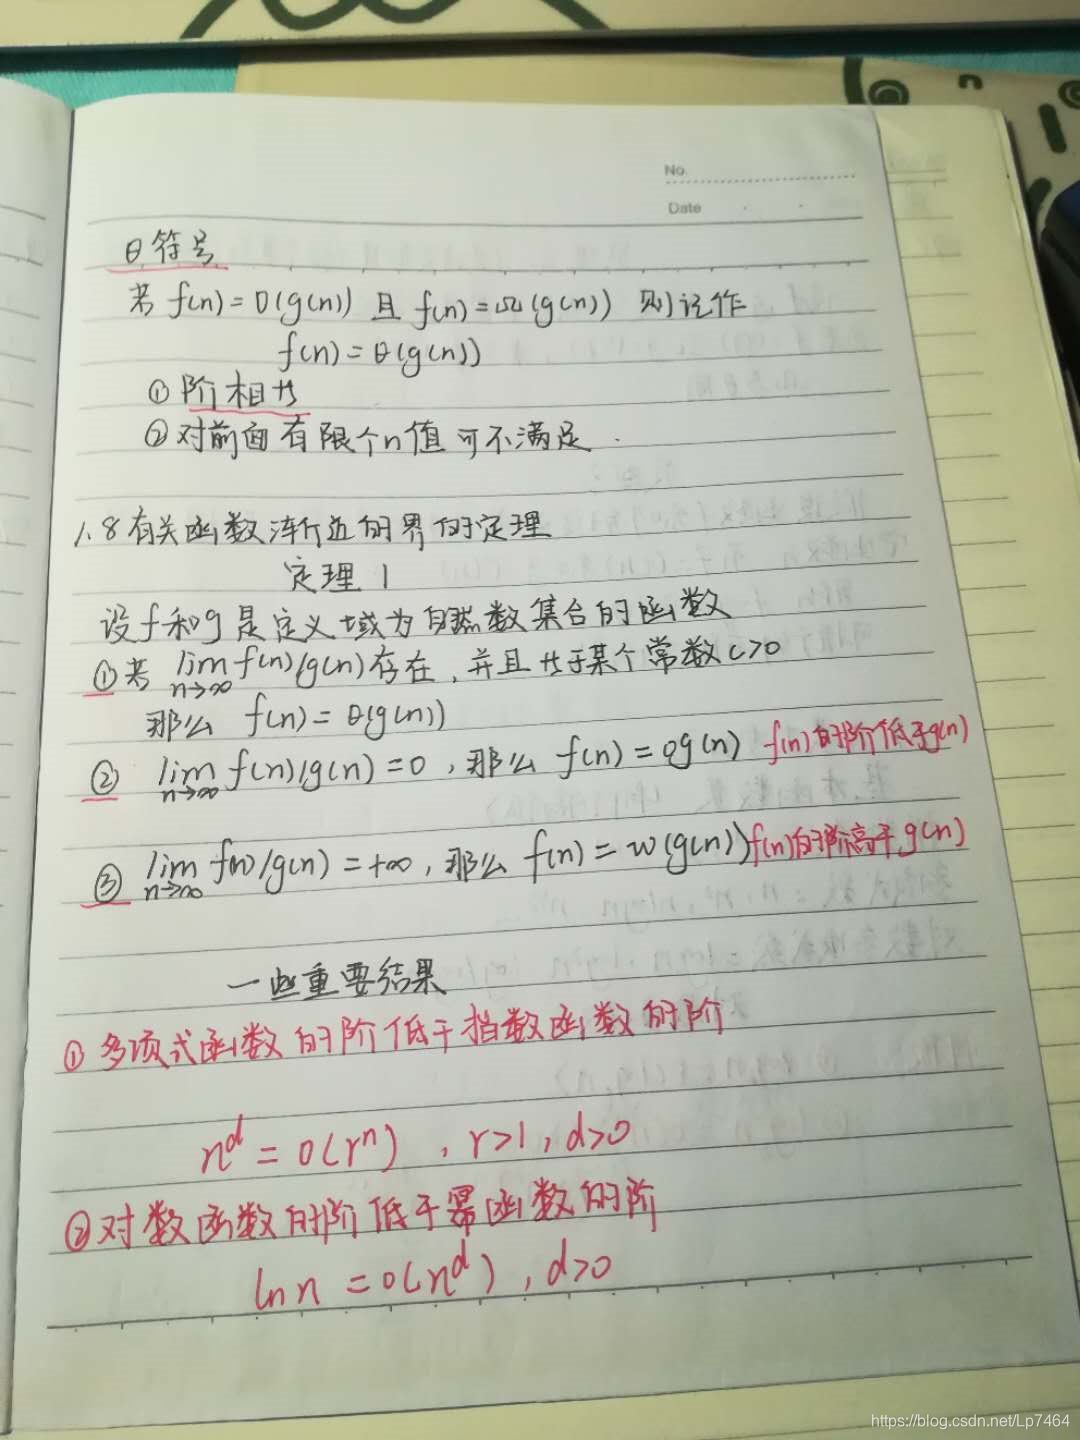 No.
Date
θ符号
若 f(n)=O(g(n)) 且 f(n)=Ω(g(n)) 则记作
f(n)=θ(g(n))
①阶相等
②对前面有限个n值可不满足.
1.8有关函数渐近的界的定理
定理1
设f和g是定义域为自然数集合的函数
①若 lim n→∞ f(n)/g(n)存在，并且等于某个常数c>0
那么 f(n)=θ(g(n))
② lim n→∞ f(n)/g(n)=0，那么 f(n)=og(n) f(n)的阶低于g(n)
③ lim n→∞ f(n)/g(n)=+∞，那么 f(n)=w(g(n)) f(n)的阶高于g(n)
一些重要结果
①多项式函数的阶低于指数函数的阶
n^d=o(r^n)，r>1，d>0
②对数函数的阶低于幂函数的阶
ln n=o(n^d)，d>0
https://blog.csdn.net/Lp7464